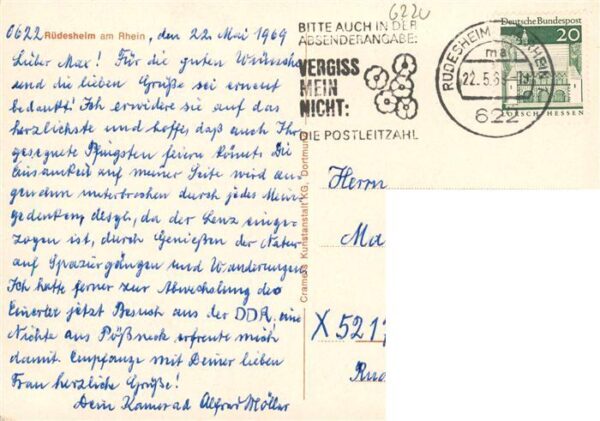 0622 Rüdesheim am Rhein, den 22. Mai 1969
Lieber Max! Für die guten Wünsche
und die lieben Grüße sei erneut
bedankt! Ich erwidere sie auf das
herzlichste und hoffe, daß auch Ihr
gesegnete Pfingsten feiern könnt. Die
Einsamkeit auf meiner Seite wird
unterbrochen durch
desgl., da der Lenz einge-
zogen ist, durch Genießen der Natur
auf Spaziergängen und Wanderungen
Ich hatte ferner zur Abwechslung des
jetzt Besuch aus der DDR, eine
Nichte aus Pößneck erfreute mich
damit. Empfange mit Deiner lieben
Frau herzliche Grüße!
Dein Kamerad Alfred Möller
Cramers Kunstanstalt KG, Dortmund
6220
BITTE AUCH IN DER
ABSENDERANGABE:
VERGISS
MEIN
NICHT:
DIE POSTLEITZAHL
RÜDESHEIM RHEIN
ma
22.5.69
622
Deutsche Bundespost
20
LORSCH/HESSEN
Herrn
Ma
X 521